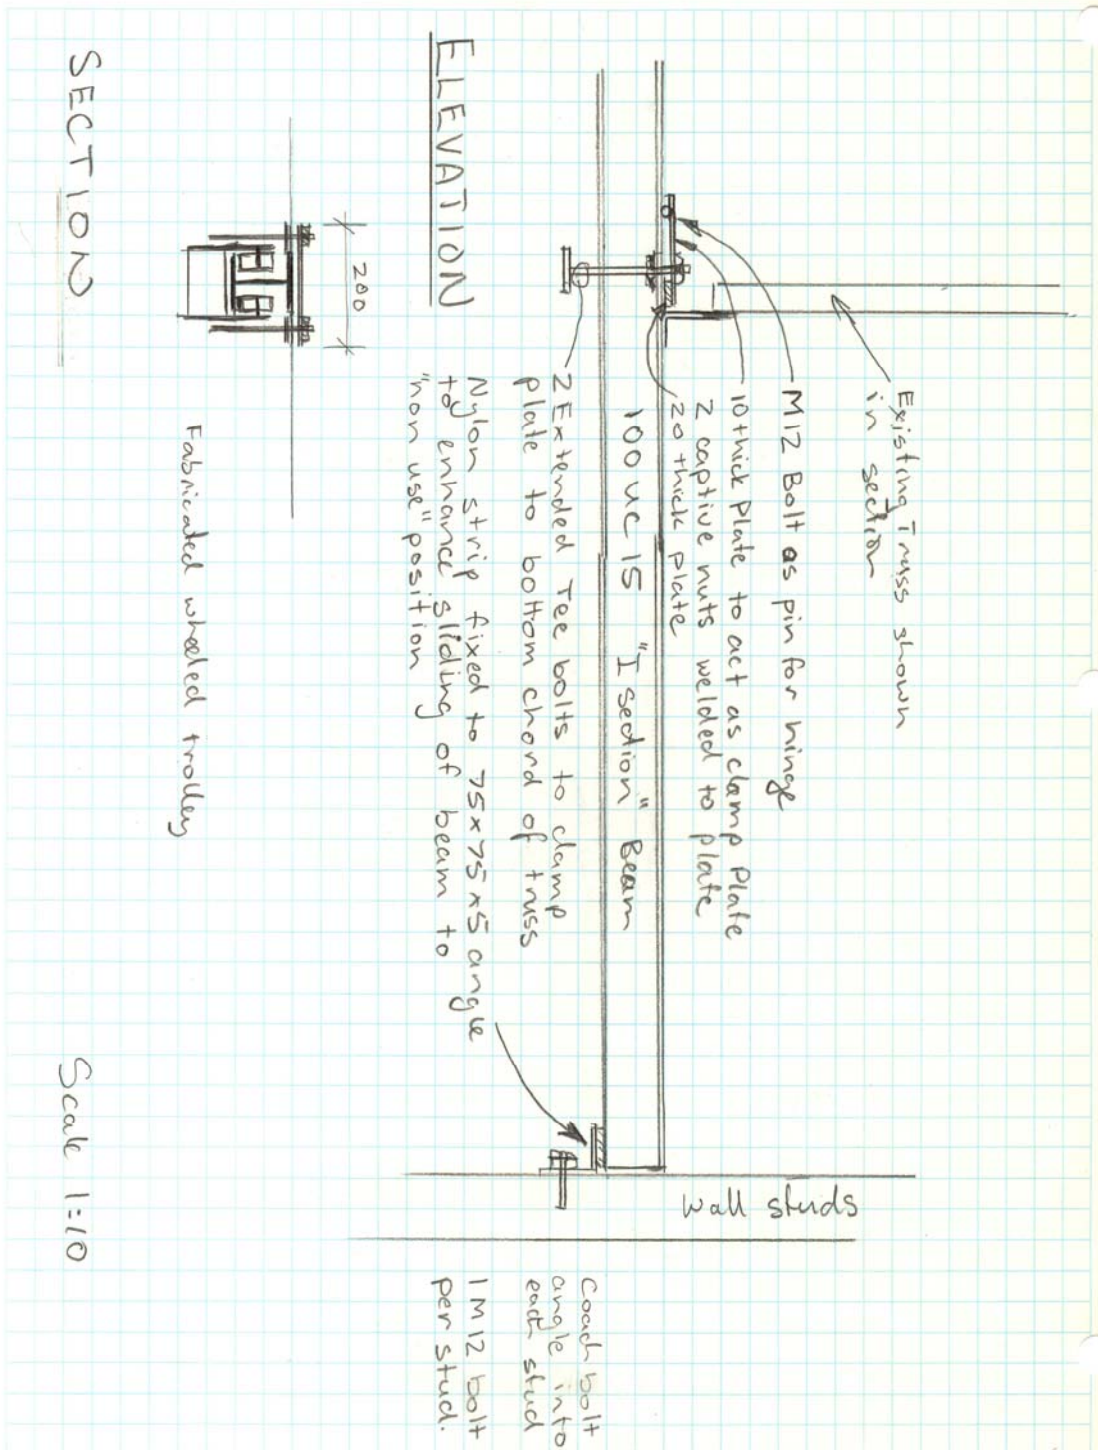 Existing Truss shown
in section
M12 Bolt as pin for hinge
10 thick Plate to act as clamp Plate
2 captive nuts welded to plate
20 thick plate
100 uc 15 "I section" Beam
2 Extended Tee bolts to clamp
plate to bottom chord of truss
Nylon strip fixed to 75x75x5 angle
to enhance sliding of beam to
"non use" position
Wall studs
Coach bolt
angle into
each stud
1 M12 bolt
per stud.
ELEVATION
200
Fabricated wheeled trolley
SECTION
Scale 1:10